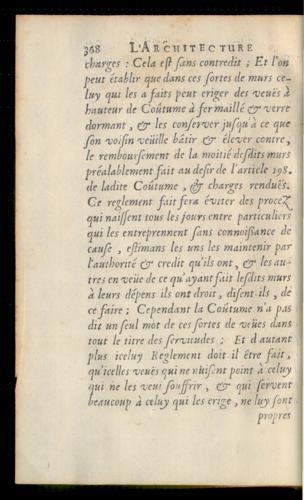 368 L'ARCHITECTURE
charges : Cela eſt ſans contredit ; Et l'on
peut établir que dans ces ſortes de murs ce-
luy qui les a faits peut eriger des veuës à
hauteur de Coûtume à fer maillé & verre
dormant, & les conſerver juſqu'à ce que
ſon voiſin veüille bâtir & élever contre,
le rembourſement de la moitié deſdits murs
préalablement fait au deſir de l'article 198.
de ladite Coûtume, & charges renduës.
Ce reglement fait fera éviter des procez
qui naiſſent tous les jours entre particuliers
qui les entreprennent ſans connoiſſance de
cauſe, eſtimans les uns les maintenir par
l'authorité & credit qu'ils ont, & les au-
tres en veüe de ce qu'ayant fait leſdits murs
à leurs dépens ils ont droit, diſent-ils, de
ce faire ; Cependant la Coûtume n'a pas
dit un ſeul mot de ces ſortes de veües dans
tout le titre des ſervitudes ; Et d'autant
plus iceluy Reglement doit il être fait,
qu'icelles veuës qui ne nuiſent point à celuy
qui ne les veut ſouffrir, & qui ſervent
beaucoup à celuy qui les erige, ne luy ſont
propres